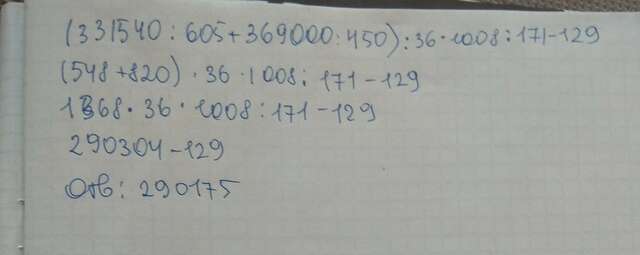 (331540:605+369000:450):36·1008:171-129
(548+820)·36·1008:171-129
1368·36·1008:171-129
290304-129
Отв: 290175